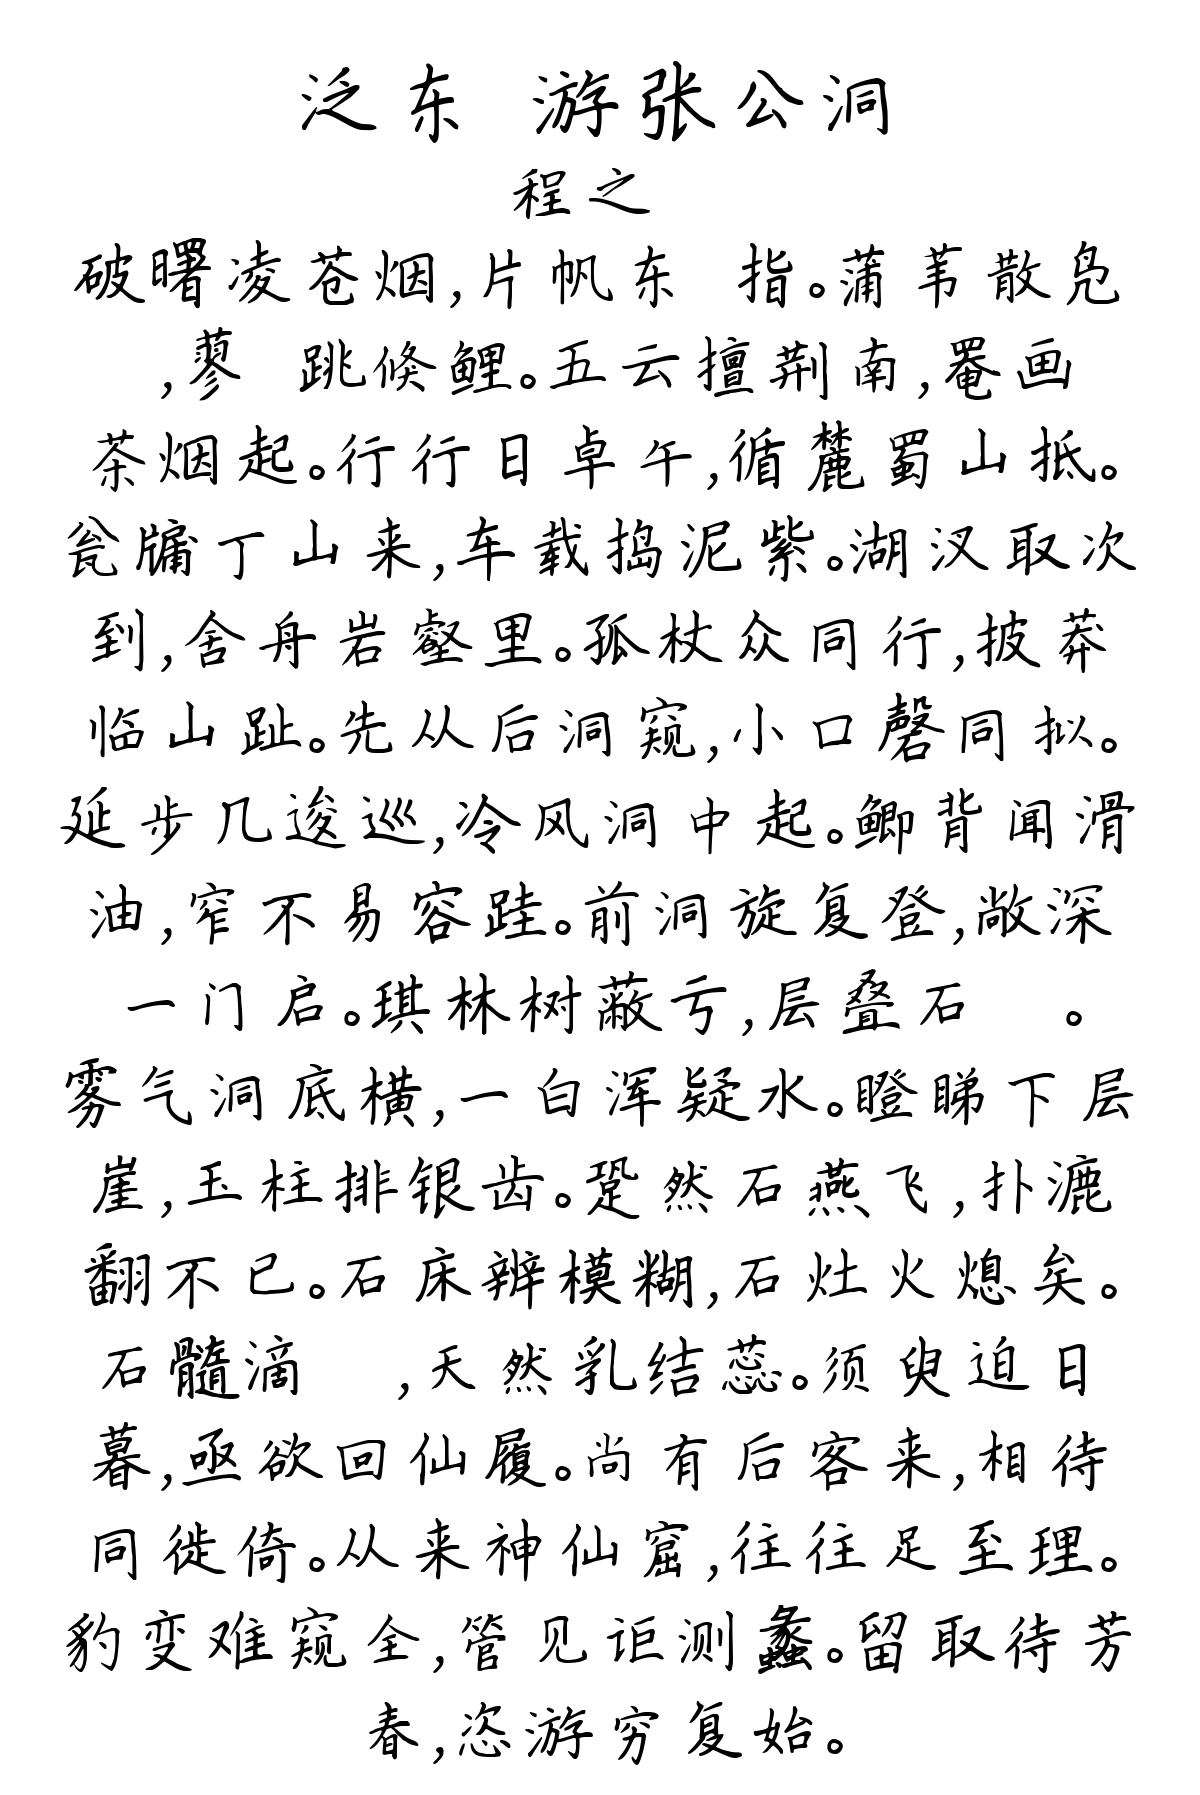 泛东 游张公洞
程之
破曙凌苍烟,片帆东 指。蒲苇散凫
,蓼 跳倏鲤。五云擅荆南,罨画
茶烟起。行行日卓午,循麓蜀山抵。
瓮牗丁山来,车载捣泥紫。湖汊取次
到,舍舟岩壑里。孤杖众同行,披莽
临山趾。先从后洞窥,小口磬同拟。
延步几逡巡,冷风洞中起。鲫背闻滑
油,窄不易容跬。前洞旋复登,敞深
一门启。琪林树蔽亏,层叠石 。
雾气洞底横,一白浑疑水。瞪睇下层
崖,玉柱排银齿。跫然石燕飞,扑漉
翻不已。石床辨模糊,石灶火熄矣。
石髓滴 ,天然乳结蕊。须臾迫日
暮,亟欲回仙履。尚有后客来,相待
同徙倚。从来神仙窟,往往足至理。
豹变难窥全,管见讵测蠡。留取待芳
春,恣游穷复始。